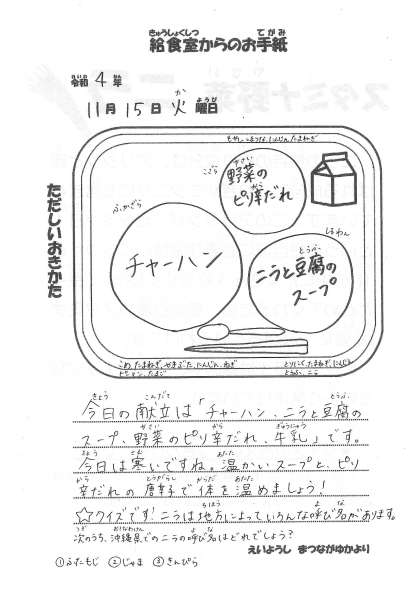 給食室からのお手紙
令和4年
11月15日火曜日
ただしいおきかた
もやし、こまつな、にんじん、たまねぎ
こざら
野菜のピリ辛だれ
ふかざら
チャーハン
しるわん
ニラと豆腐のスープ
こめ、たまねぎ、やきぶた、にんじん、ねぎ
ピーマン、たまご
とりにく、たまねぎ、にんじん
とうふ、ニラ
今日の献立は「チャーハン、ニラと豆腐の
スープ、野菜のピリ辛だれ、牛乳」です。
今日は寒いですね。温かいスープと、ピリ
辛だれの唐辛子で体を温めましょう!
☆クイズです!ニラは地方によっていろんな呼び名があります。
次のうち、沖縄県でのニラの呼び名はどれでしょう?
①ふたもじ ②じゃま ③きんぴら
えいようし まつながゆかより